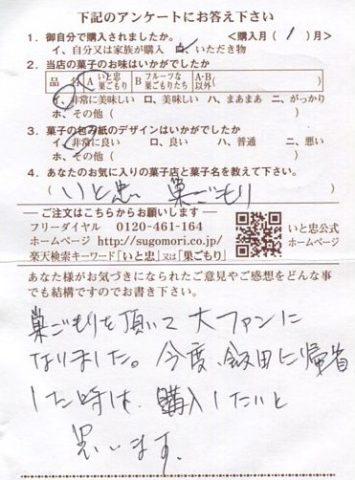 下記のアンケートにお答え下さい
1. 御自分で購入されましたか。 <購入月( 1 )月>
イ、自分又は家族が購入 ロ、いただき物
2. 当店の菓子のお味はいかがでしたか
品名 A いと忠巣ごもり B フルーツな巣ごもりたち A・B以外( )
イ、非常に美味しい ロ、美味しい ハ、まあまあ ニ、がっかり
ホ、その他( )
3. 菓子の包み紙のデザインはいかがでしたか
イ、非常に良い ロ、良い ハ、普通 ニ、悪い
ホ、その他( )
4. あなたのお気に入りの菓子店と菓子名を教えて下さい。
( いと忠 巣ごもり )
― ご注文はこちらからお願いします ―
フリーダイヤル 0120-461-164
ホームページ http://sugomori.co.jp/
楽天検索キーワード「いと忠」又は「巣ごもり」
いと忠公式
ホームページ
あなた様がお気づきになられたご意見やご感想をどんな事
でも結構ですのでお書き下さい。
巣ごもりを頂いて大ファンに
なりました。今度、飯田に帰省
した時は、購入したいと
思います。